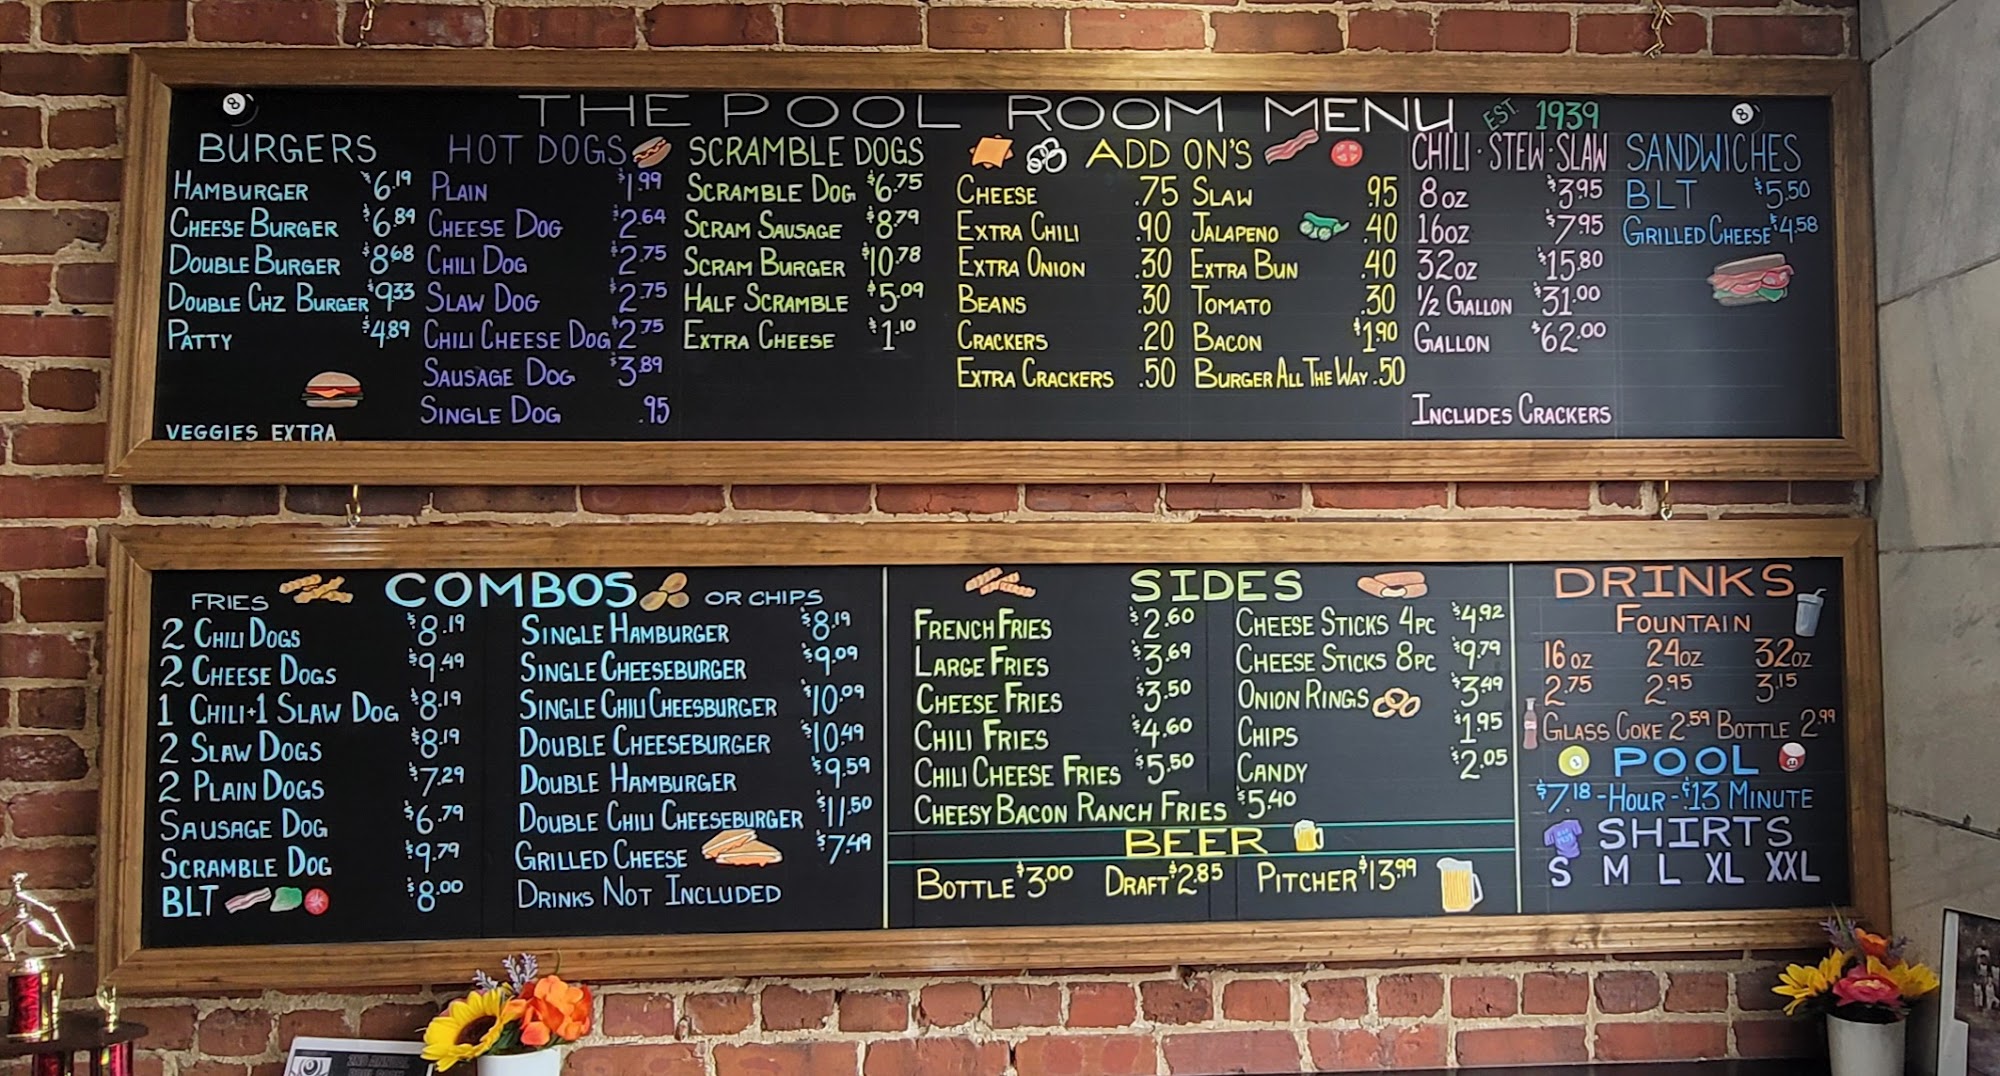 THE POOL ROOM MENU EST. 1939
BURGERS
HAMBURGER $6.19
CHEESE BURGER $6.89
DOUBLE BURGER $8.68
DOUBLE CHZ BURGER $9.33
PATTY $4.89
VEGGIES EXTRA
HOT DOGS
PLAIN $1.99
CHEESE DOG $2.64
CHILI DOG $2.75
SLAW DOG $2.75
CHILI CHEESE DOG $2.75
SAUSAGE DOG $3.89
SINGLE DOG .95
SCRAMBLE DOGS
SCRAMBLE DOG $6.75
SCRAM SAUSAGE $8.79
SCRAM BURGER $10.78
HALF SCRAMBLE $5.09
EXTRA CHEESE $1.10
ADD ON'S
CHEESE .75
EXTRA CHILI .90
EXTRA ONION .30
BEANS .30
CRACKERS .20
EXTRA CRACKERS .50
SLAW .95
JALAPENO .40
EXTRA BUN .40
TOMATO .30
BACON $1.90
BURGER ALL THE WAY .50
CHILI · STEW · SLAW
8 OZ $3.95
16 OZ $7.95
32 OZ $15.80
1/2 GALLON $31.00
GALLON $62.00
INCLUDES CRACKERS
SANDWICHES
BLT $5.50
GRILLED CHEESE $4.58
FRIES COMBOS OR CHIPS
2 CHILI DOGS $8.19
2 CHEESE DOGS $9.49
1 CHILI+1 SLAW DOG $8.19
2 SLAW DOGS $8.19
2 PLAIN DOGS $7.29
SAUSAGE DOG $6.79
SCRAMBLE DOG $9.79
BLT $8.00
SINGLE HAMBURGER $8.19
SINGLE CHEESEBURGER $9.09
SINGLE CHILI CHEESBURGER $10.09
DOUBLE CHEESEBURGER $10.49
DOUBLE HAMBURGER $9.59
DOUBLE CHILI CHEESEBURGER $11.50
GRILLED CHEESE $7.49
DRINKS NOT INCLUDED
SIDES
FRENCH FRIES $2.60
LARGE FRIES $3.69
CHEESE FRIES $3.50
CHILI FRIES $4.60
CHILI CHEESE FRIES $5.50
CHEESY BACON RANCH FRIES $5.40
CHEESE STICKS 4PC $4.92
CHEESE STICKS 8PC $9.79
ONION RINGS $3.49
CHIPS $1.95
CANDY $2.05
BEER
BOTTLE $3.00 DRAFT $2.85 PITCHER $13.99
DRINKS
FOUNTAIN
16 OZ 24 OZ 32 OZ
2.75 2.95 3.15
GLASS COKE 2.59 BOTTLE 2.99
POOL
$7.18-HOUR-¢13 MINUTE
SHIRTS
S M L XL XXL
2ND ANNUAL